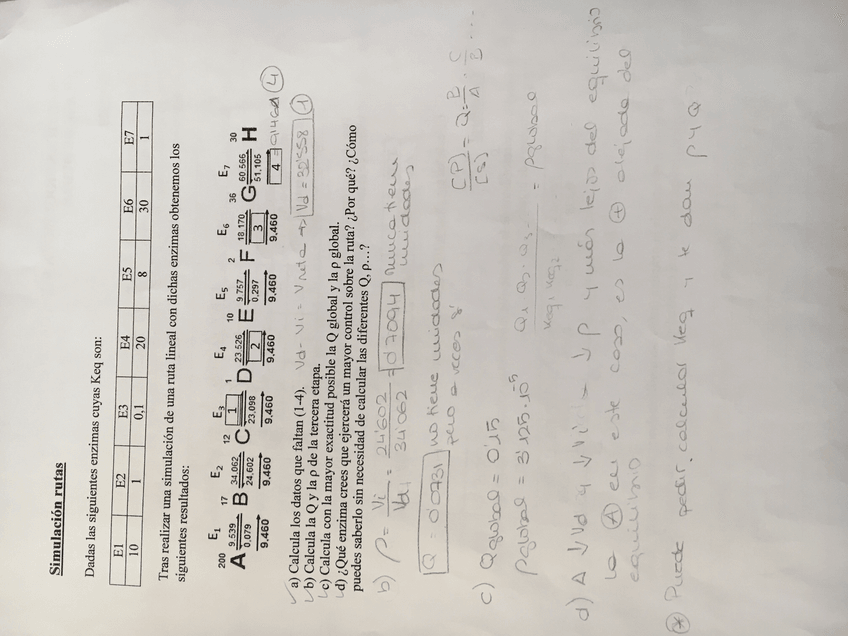 Simulación rutas
Dadas las siguientes enzimas cuyas Keq son:
E1 E2 E3 E4 E5 E6 E7
10 1 0,1 20 8 30 1
Tras realizar una simulación de una ruta lineal con dichas enzimas obtenemos los
siguientes resultados:
E1 E2 E3 E4 E5 E6 E7
200 17 12 1 10 2 36 30
9.539 34.062 1 23.526 9.757 18.170 60.565
A B C D E F G H
0.079 24.602 23.098 2 0.297 3 51.105
9.460 9.460 9.460 9.460 9.460 9.460 4 = 9'460 4
a) Calcula los datos que faltan (1-4). Vd - Vi = Vruta → Vd = 32'558 1
b) Calcula la Q y la ρ de la tercera etapa.
c) Calcula con la mayor exactitud posible la Q global y la ρ global.
d) ¿Qué enzima crees que ejercerá un mayor control sobre la ruta? ¿Por qué? ¿Cómo
puedes saberlo sin necesidad de calcular las diferentes Q, ρ…?
b) ρ = Vi / Vd = 24'602 / 34'062 = 0'7094 nunca tiene
unidades
Q = 0'0731 no tiene unidades
pero a veces sí
[P] / [S] = Q = B/A · C/B · ...
c) Qglobal = 0'15
ρglobal = 3'125·10⁻⁵ Q1 · Q2 · Q3... / Keq1 Keq2 = ρglobal
d) A ↓Vd y ↓Vi → ↓ρ y más lejos del equilibrio
la A en este caso, es la + alejada del
equilibrio
* Puede pedir, calcular Keq y te dan ρ y Q